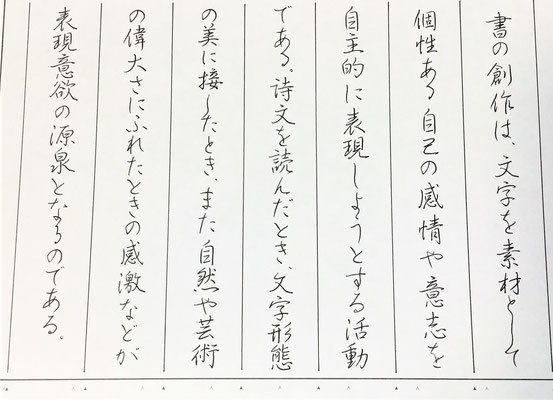 書の創作は、文字を素材として
個性ある自己の感情や意志を
自主的に表現しようとする活動
である。詩文を読んだとき、文字形態
の美に接したとき、また自然や芸術
の偉大さにふれたときの感激などが
表現意欲の源泉となるのである。